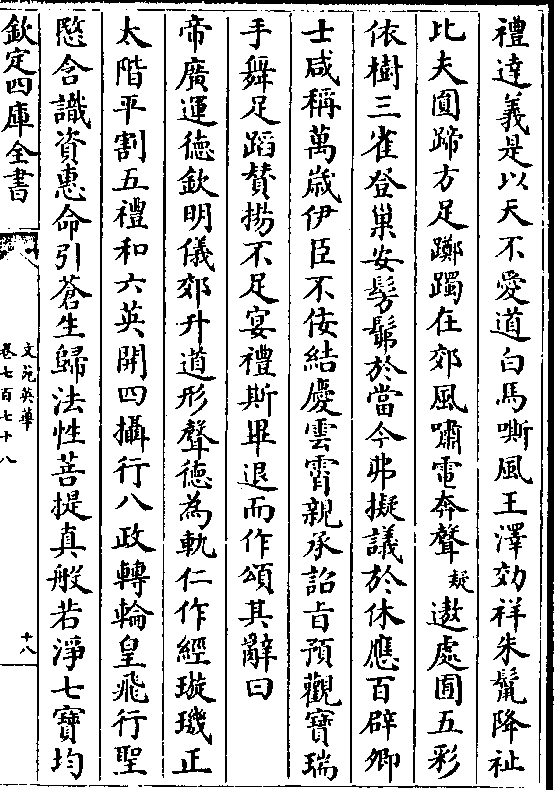 禮達義是以天不愛道白馬嘶風王澤効祥朱鬛降祉
比夫圎蹄方足躑躅在郊風嘯電奔聲疑遨處囿五彩
依樹三雀登巢安髣髴於當今弗擬議於休應百辟卿
士咸稱萬嵗伊臣不佞結慶雲霄親承詔旨預觀寶瑞
手舞足蹈賛揚不足宴禮斯畢退而作頌其辭曰
帝廣運德欽明儀郊升道形聲德為軌仁作經璇璣正
太階平割五禮和六英開四攝行八政轉輪皇飛行聖
愍含識資惠命引蒼生歸法性菩提真般若淨七寶均
欽定四庫全書
文苑英華
卷七百七十八
十八